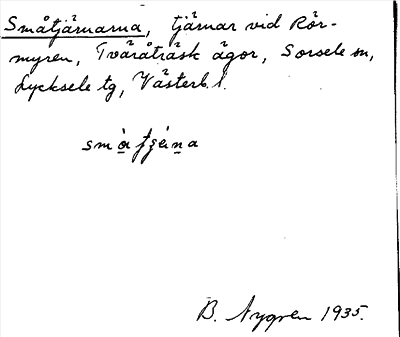 Småtjärnarna, tjärnar vid Rör-
myren, Tvåråträsk ägor, Sorsele sn,
Lycksele tg, Västerb. l.
B. Nygren 1935.